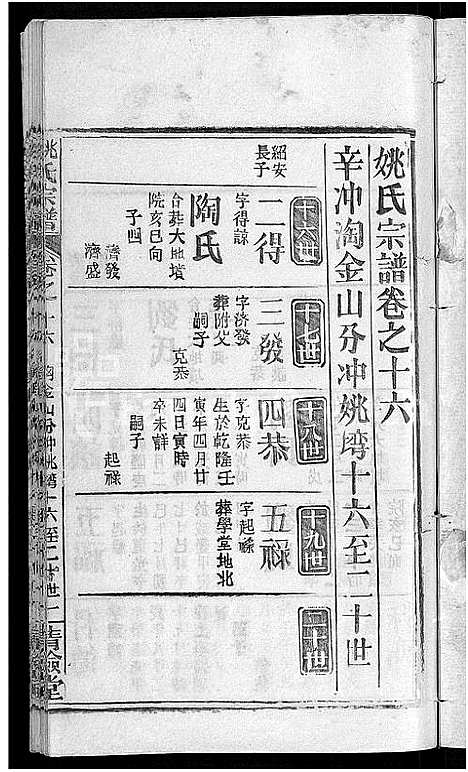 姚氏宗譜卷之十六
辛冲淘金山分冲姚塆十六至二十世
十六世
紹安長子
二得
字得諒
陶氏
合葬大地墳
院亥巳向
子四
濟發
濟盛
十七世
三發
字濟發
葬附父
嗣子
克恭
十八世
四恭
字克恭
生於乾隆壬
寅年四月廿
四日寅時
卒未詳
嗣子
起祿
十九世
五祿
字起祿
葬學堂地北
二十世
姚氏宗譜
卷之十六
淘金山分冲姚塆十六至二十世
一